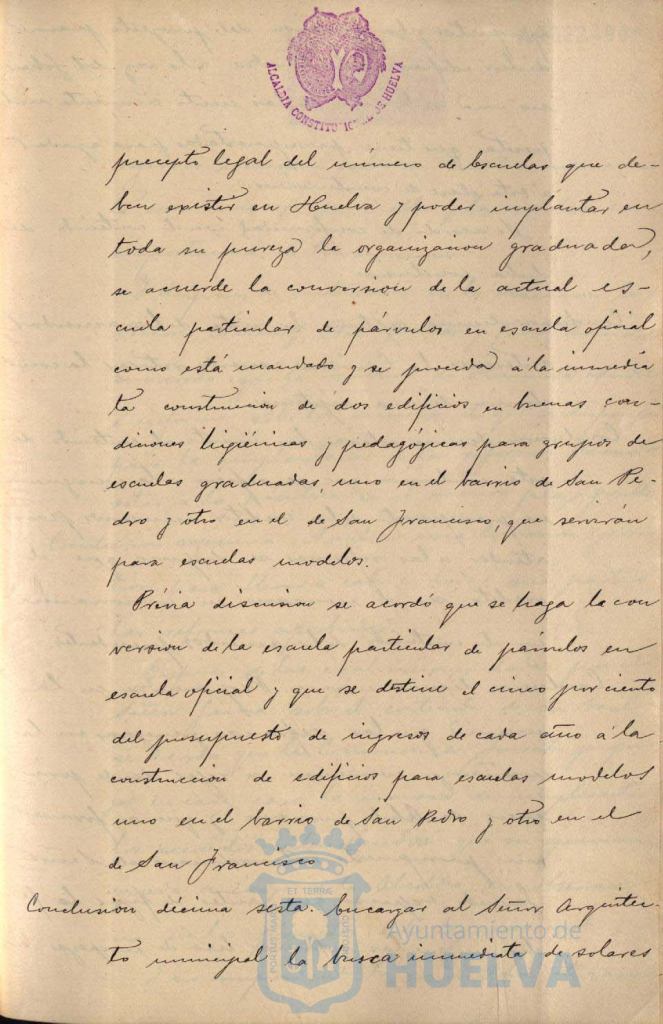 ALCALDIA CONSTITUCIONAL DE HUELVA
precepto legal del número de Escuelas que de-
ben existir en Huelva y poder implantar en
toda su pureza la organizacion graduada,
se acuerde la conversion de la actual es-
cuela particular de párvulos en escuela oficial
como está mandado y se proceda á la inmedia
ta construccion de dos edificios en buenas con-
diciones higiénicas y pedagógicas para grupos de
escuelas graduadas, uno en el barrio de San Pe-
dro y otro en el de San Francisco, que servirán
para escuelas modelos.
Prévia discusion se acordó que se haga la con
version de la escuela particular de párvulos en
escuela oficial y que se destine el cinco por ciento
del presupuesto de ingresos de cada año á la
construccion de edificios para escuelas modelos
uno en el barrio de San Pedro y otro en el
de San Francisco
Conclusion décima sesta. Encargar al Señor Arquitec-
to municipal la busca inmediata de solares
Ayuntamiento de
HUELVA